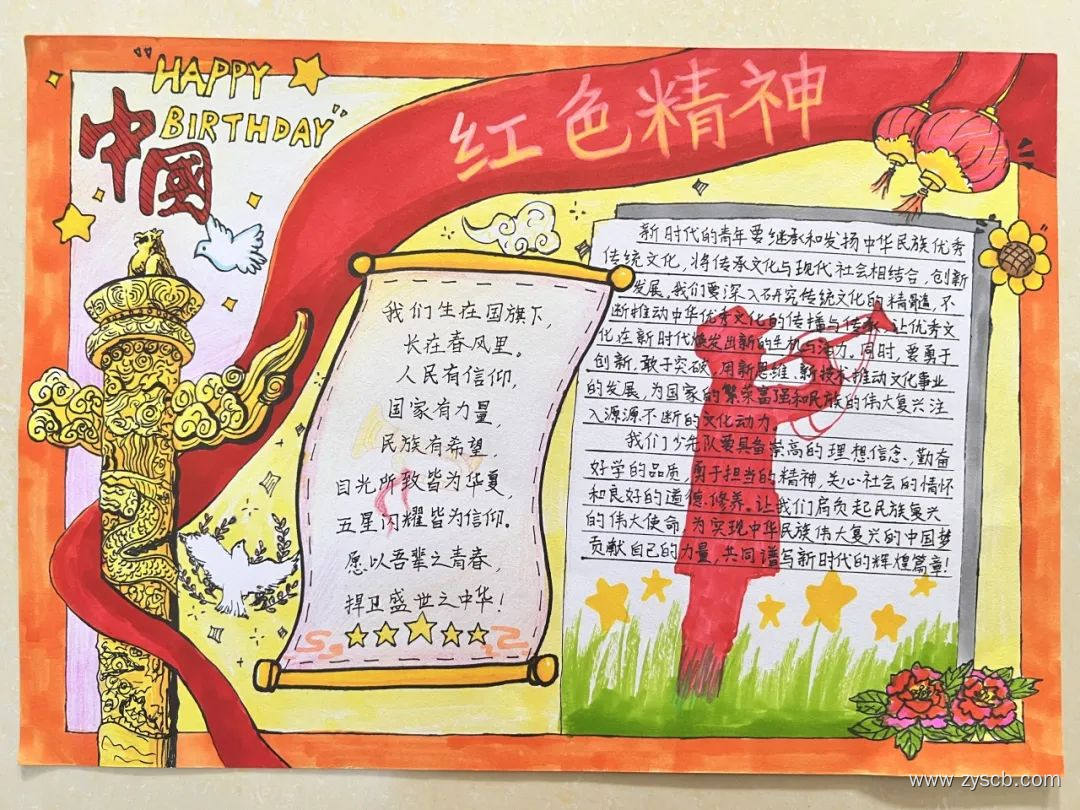 "HAPPY
BIRTHDAY"
中國
红色精神
我们生在国旗下,
长在春风里。
人民有信仰,
国家有力量,
民族有希望,
目光所致皆为华夏,
五星闪耀皆为信仰。
愿以吾辈之青春,
捍卫盛世之中华!
新时代的青年要继承和发扬中华民族优秀
传统文化,将传承文化与现代社会相结合,创新
发展,我们要深入研究传统文化的精髓,不
断推动中华优秀文化的传播与传承,让优秀文
化在新时代焕发出新的生机与活力。同时,要勇于
创新,敢于突破,用新思维、新技术推动文化事业
的发展,为国家的繁荣富强和民族的伟大复兴注
入源源不断的文化动力。
我们少先队要具备崇高的理想信念、勤奋
好学的品质,勇于担当的精神,关心社会的情怀
和良好的道德修养。让我们肩负起民族复兴
的伟大使命,为实现中华民族伟大复兴的中国梦
贡献自己的力量,共同谱写新时代的辉煌篇章!
www.zyscb.com